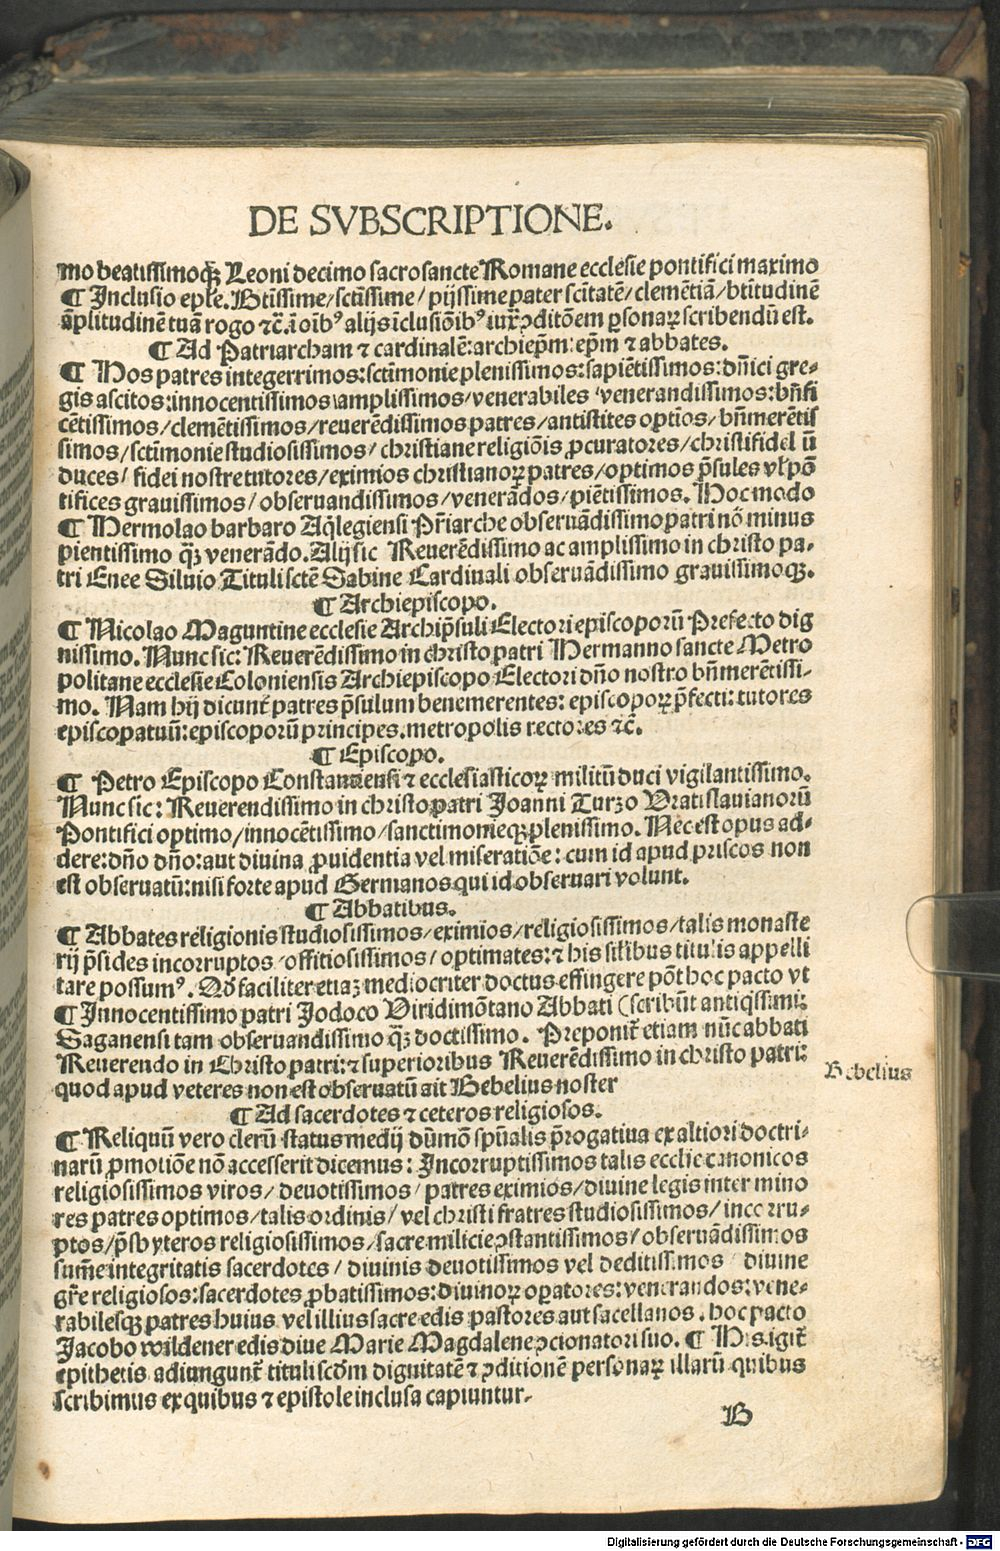 DE SVBSCRIPTIONE.
mo beatissimoqꝫ Leoni decimo sacrosancte Romane ecclesie pontifici maximo
¶ Inclusio eple. Btissime/sctissime/pijssime pater scitatẽ/clemẽtiã/btitudinẽ
ãplitudinẽ tuã rogo ⁊c̃. ĩ oĩbꝰ alijs ĩclusiõibꝰ iuxꝭ ꝯditõem ꝑsonaꝝ scribendũ est.
¶ Ad Patriarcham ⁊ cardinalẽ: archiep̃m: ep̃m ⁊ abbates.
¶ Hos patres integerrimos: sctĩmonie plenissimos: sapiẽtissimos: dñici gre-
gis ascitos: innocentissimos amplissimos/venerabiles/venerandissimos: bñfi
cẽtissimos/clemẽtissimos/reuerẽdissimos patres/antistites optĩos/bñmerẽtis
simos/sctĩmonie studiosissimos/christiane religiõis ꝓcuratores/christifideliũ
duces/fidei nostre tutores/eximios christianoꝝ patres/optimos p̃sules vl̓ põ
tifices grauissimos/obseruandissimos/venerãdos/piẽtissimos. Hoc modo
¶ Hermolao barbaro Aq̃legiensi Pr̃iarche obseruãdissimo patri nõ minus
pientissimo qꝫ venerãdo. Alij sic Reuerẽdissimo ac amplissimo in christo pa-
tri Enee Siluio Tituli sctẽ Sabine Cardinali obseruãdissimo grauissimoqꝫ.
¶ Archiepiscopo.
¶ Nicolao Maguntine ecclesie Archip̃suli Electori episcoporũ Prefecto dig
nissimo. Nunc sic: Reuerẽdissimo in christo patri Hermanno sancte Metro
politane ecclesie Coloniensis Archiepiscopo Electori dño nostro bñmerẽtissi-
mo. Nam hij dicunt̃ patres p̃sulum benemerentes: episcopoꝝ p̃fecti: tutores
episcopatuũ: episcoporũ principes. metropolis rectores ⁊c̃.
¶ Episcopo.
¶ Petro Episcopo Constanzensi ⁊ ecclesiasticoꝝ militũ duci vigilantissimo.
Nunc sic: Reuerendissimo in christo patri Joanni Turzo Vratislauianorũ
Pontifici optimo/innocẽtissimo/sanctimonieqꝫ plenissimo. Nec est opus ad-
dere: dño dño: aut diuina ꝓuidentia vel miseratiõe: cum id apud priscos non
est obseruatũ: nisi forte apud Germanos qui id obseruari volunt.
¶ Abbatibus.
¶ Abbates religionis studiosissimos/eximios/religiosissimos/talis monaste
rij p̃sides incorruptos/offitiosissimos/optimates: ⁊ his sil̓ibus titulis appelli
tare possumꝰ. Qđ faciliter etiaꝫ mediocriter doctus effingere põt hoc pacto vt
¶ Innocentissimo patri Jodoco Viridimõtano Abbati (scribũt antiq̃ssimi:
Saganensi tam obseruandissimo qꝫ doctissimo. Preponit̃ etiam nũc abbati
Reuerendo in Christo patri: ⁊ superioribus Reuerẽdissimo in christo patri:
quod apud veteres non est obseruatũ ait Bebelius noster
Bebelius
¶ Ad sacerdotes ⁊ ceteros religiosos.
¶ Reliquũ vero clerũ status medij dũmõ spũalis p̃rogatiua ex altiori doctri-
narũ ꝓmotiõe nõ accesserit dicemus: Incorruptissimos talis ecclie canonicos
religiosissimos viros/deuotissimos/patres eximios/diuine legis inter mino
res patres optimos/talis ordinis/vel christi fratres studiosissimos/incorru-
ptos/p̃sbyteros religiosissimos/sacre milicie ꝯstantissimos/obseruãdissimos
sum̃e integritatis sacerdotes/diuinis deuotissimos vel deditissimos/diuine
gr̃e religiosos: sacerdotes ꝓbatissimos: diuinoꝝ oꝑatores: venerandos: vene-
rabilesqꝫ patres huius vel illius sacre edis pastores aut sacellanos. hoc pacto
Jacobo wildener edis diue Marie Magdalene ꝯcionatori suo. ¶ His igit̃
epithetis adiungunt̃ tituli scđm dignitatẽ ⁊ ꝯditionẽ personaꝝ illarũ quibus
scribimus ex quibus ⁊ epistole inclusa capiuntur.
B
Digitalisierung gefördert durch die Deutsche Forschungsgemeinschaft - DFG